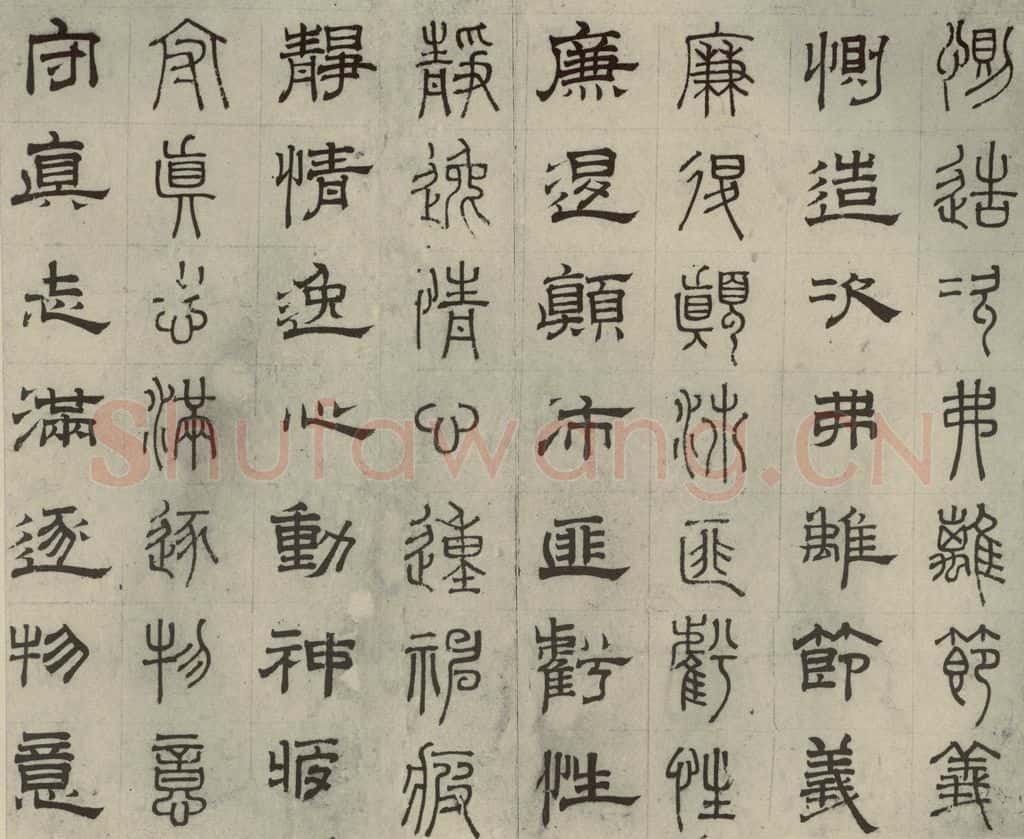 惻造次弗離節義
惻造次弗離節義
廉退顚沛匪虧性
廉退顚沛匪虧性
靜逸情心動神疲
靜情逸心動神疲
守眞志滿逐物意
守眞志滿逐物意
Shufawang.CN